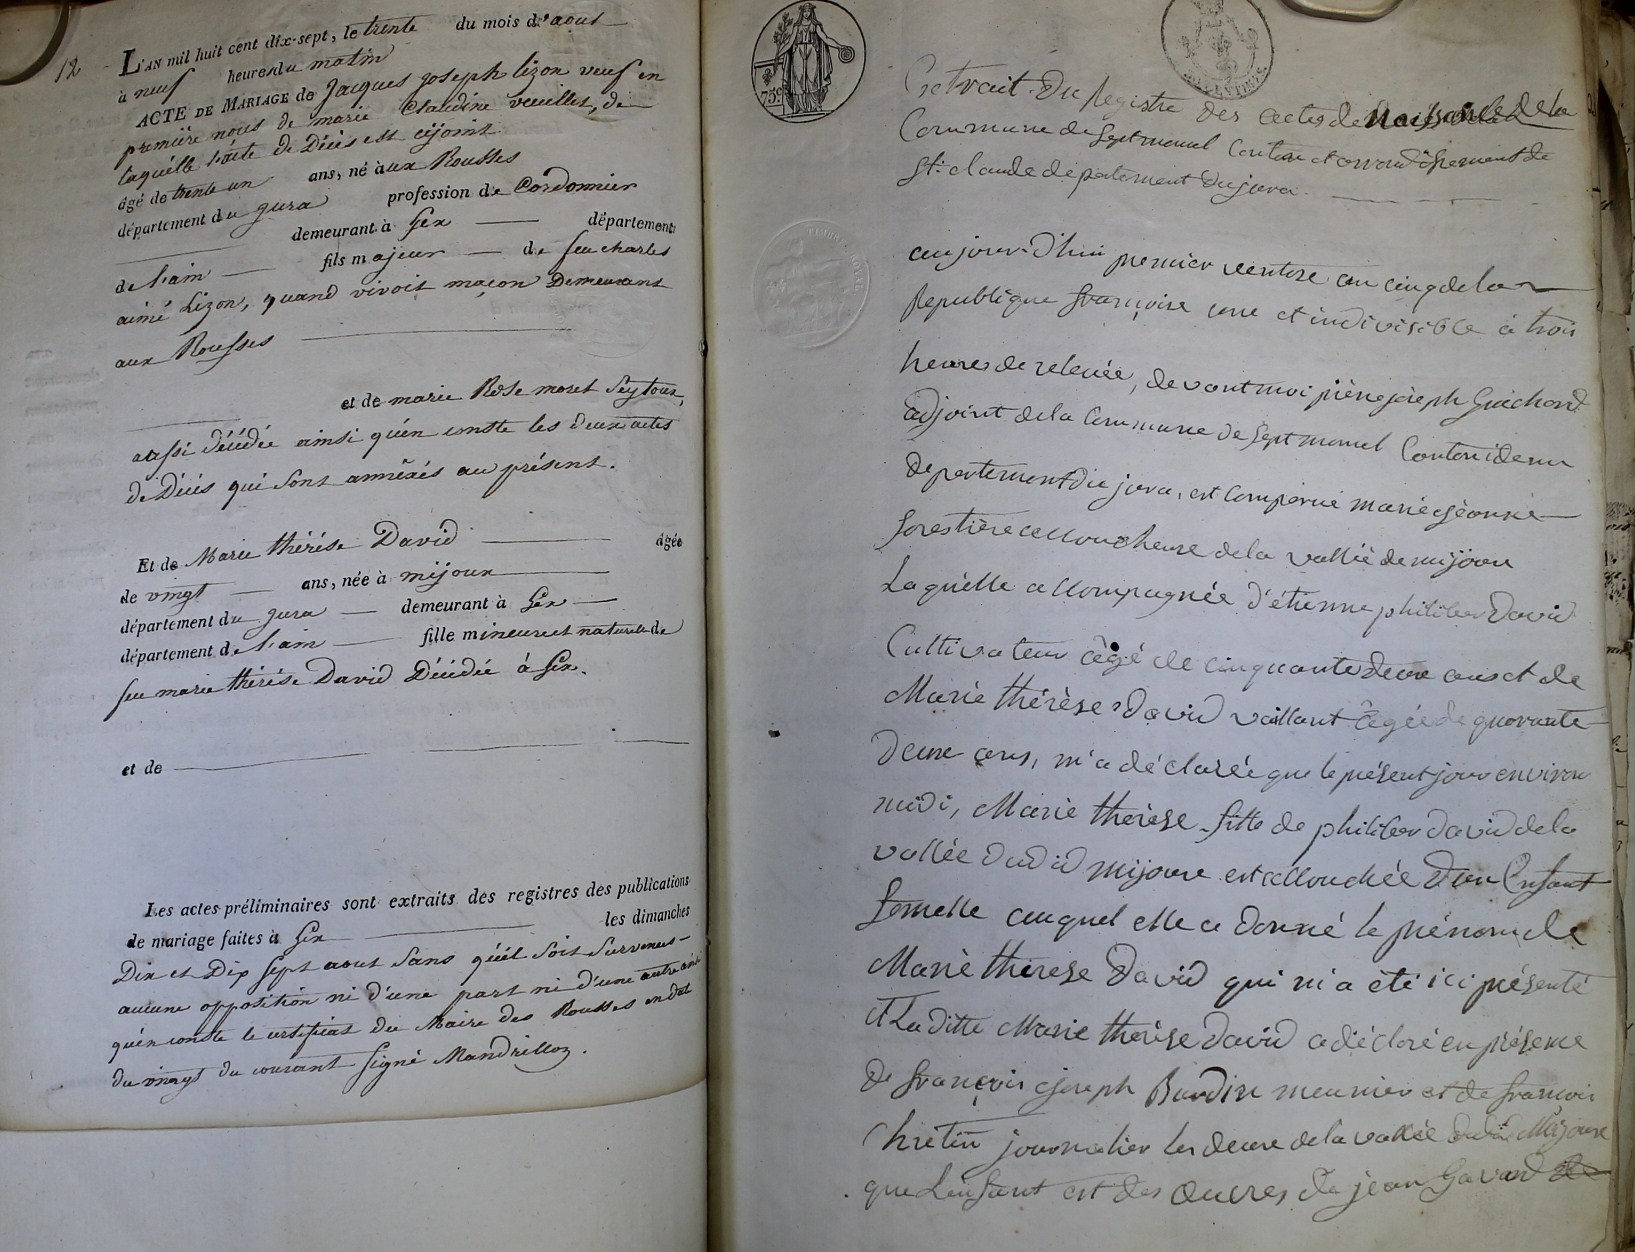 12
L'AN mil huit cent dix-sept, le trente du mois d'aout
à neuf heures du matin
ACTE DE MARIAGE de Jacques joseph lizon veuf en
première noces de marie Claudine vuillet, de
laquélle l'acte de Décès est cijoint
âgé de trente un ans, né aux Rousses
département du jura profession de Cordonnier
demeurant à Gex département
de l'ain fils majeur de feu charles
aimé Lizon, quand vivoit maçon Demeurant
aux Rousses
et de marie Rose moret Seytoux,
aussi décédée ainsi qu'en conste les deux actes
de Décès qui sont annéxés au présent.
Et de Marie thérése David âgée
de vingt ans, née à mijoux
département du jura demeurant à Gex
département de l'ain fille mineure et naturelle de
feu marie thérése David Décédée à Gex.
et de
Les actes préliminaires sont extraits des registres des publications
de mariage faites à Gex les dimanches
Dix et Dix sept aout sans qu'il soit survenus
aucune opposition ni d'une part ni d'une autre ainsi
qu'en conste le certificat du Maire des Rousses en dat
du vingt du courant signé Mandrillon.
75c
Extrait du Registre des actes de Naissances de la
Commune de Septmoncel Canton et arrondissement de
St. claude departement du jura.
aujourd'hui premier ventose an cinq de la
Republique françoise une et indivisible à trois
heures de relevée, devant moi pièrre joseph Guichard
adjoint de la Commune de Septmoncel Canton idem
departement du jura, est comparue marie jéanne
forestière accoucheuse de la vallée de mijoux
Laquélle accompagnée d'étienne philiber David
Cultivateur âgé de cinquante deux ans et de
Marie thérèse David vaillant âgée de quarante
deux ans, m'a déclarée que le présent jour environ
midi, Marie thérèse fille de philiber david de la
vallée dudid mijoux est accouchée d'un Enfant
femelle auquel elle a donné le prénom de
Marie thérese David qui m'a été ici présenté
et La ditte Marie thérèse David a déclaré en présence
de françois joseph Burdin meunier et de francois
Chrétin journalier les deux de la vallée dudid Mijoux
que L'enfant est des œuvres de jéan Gavard